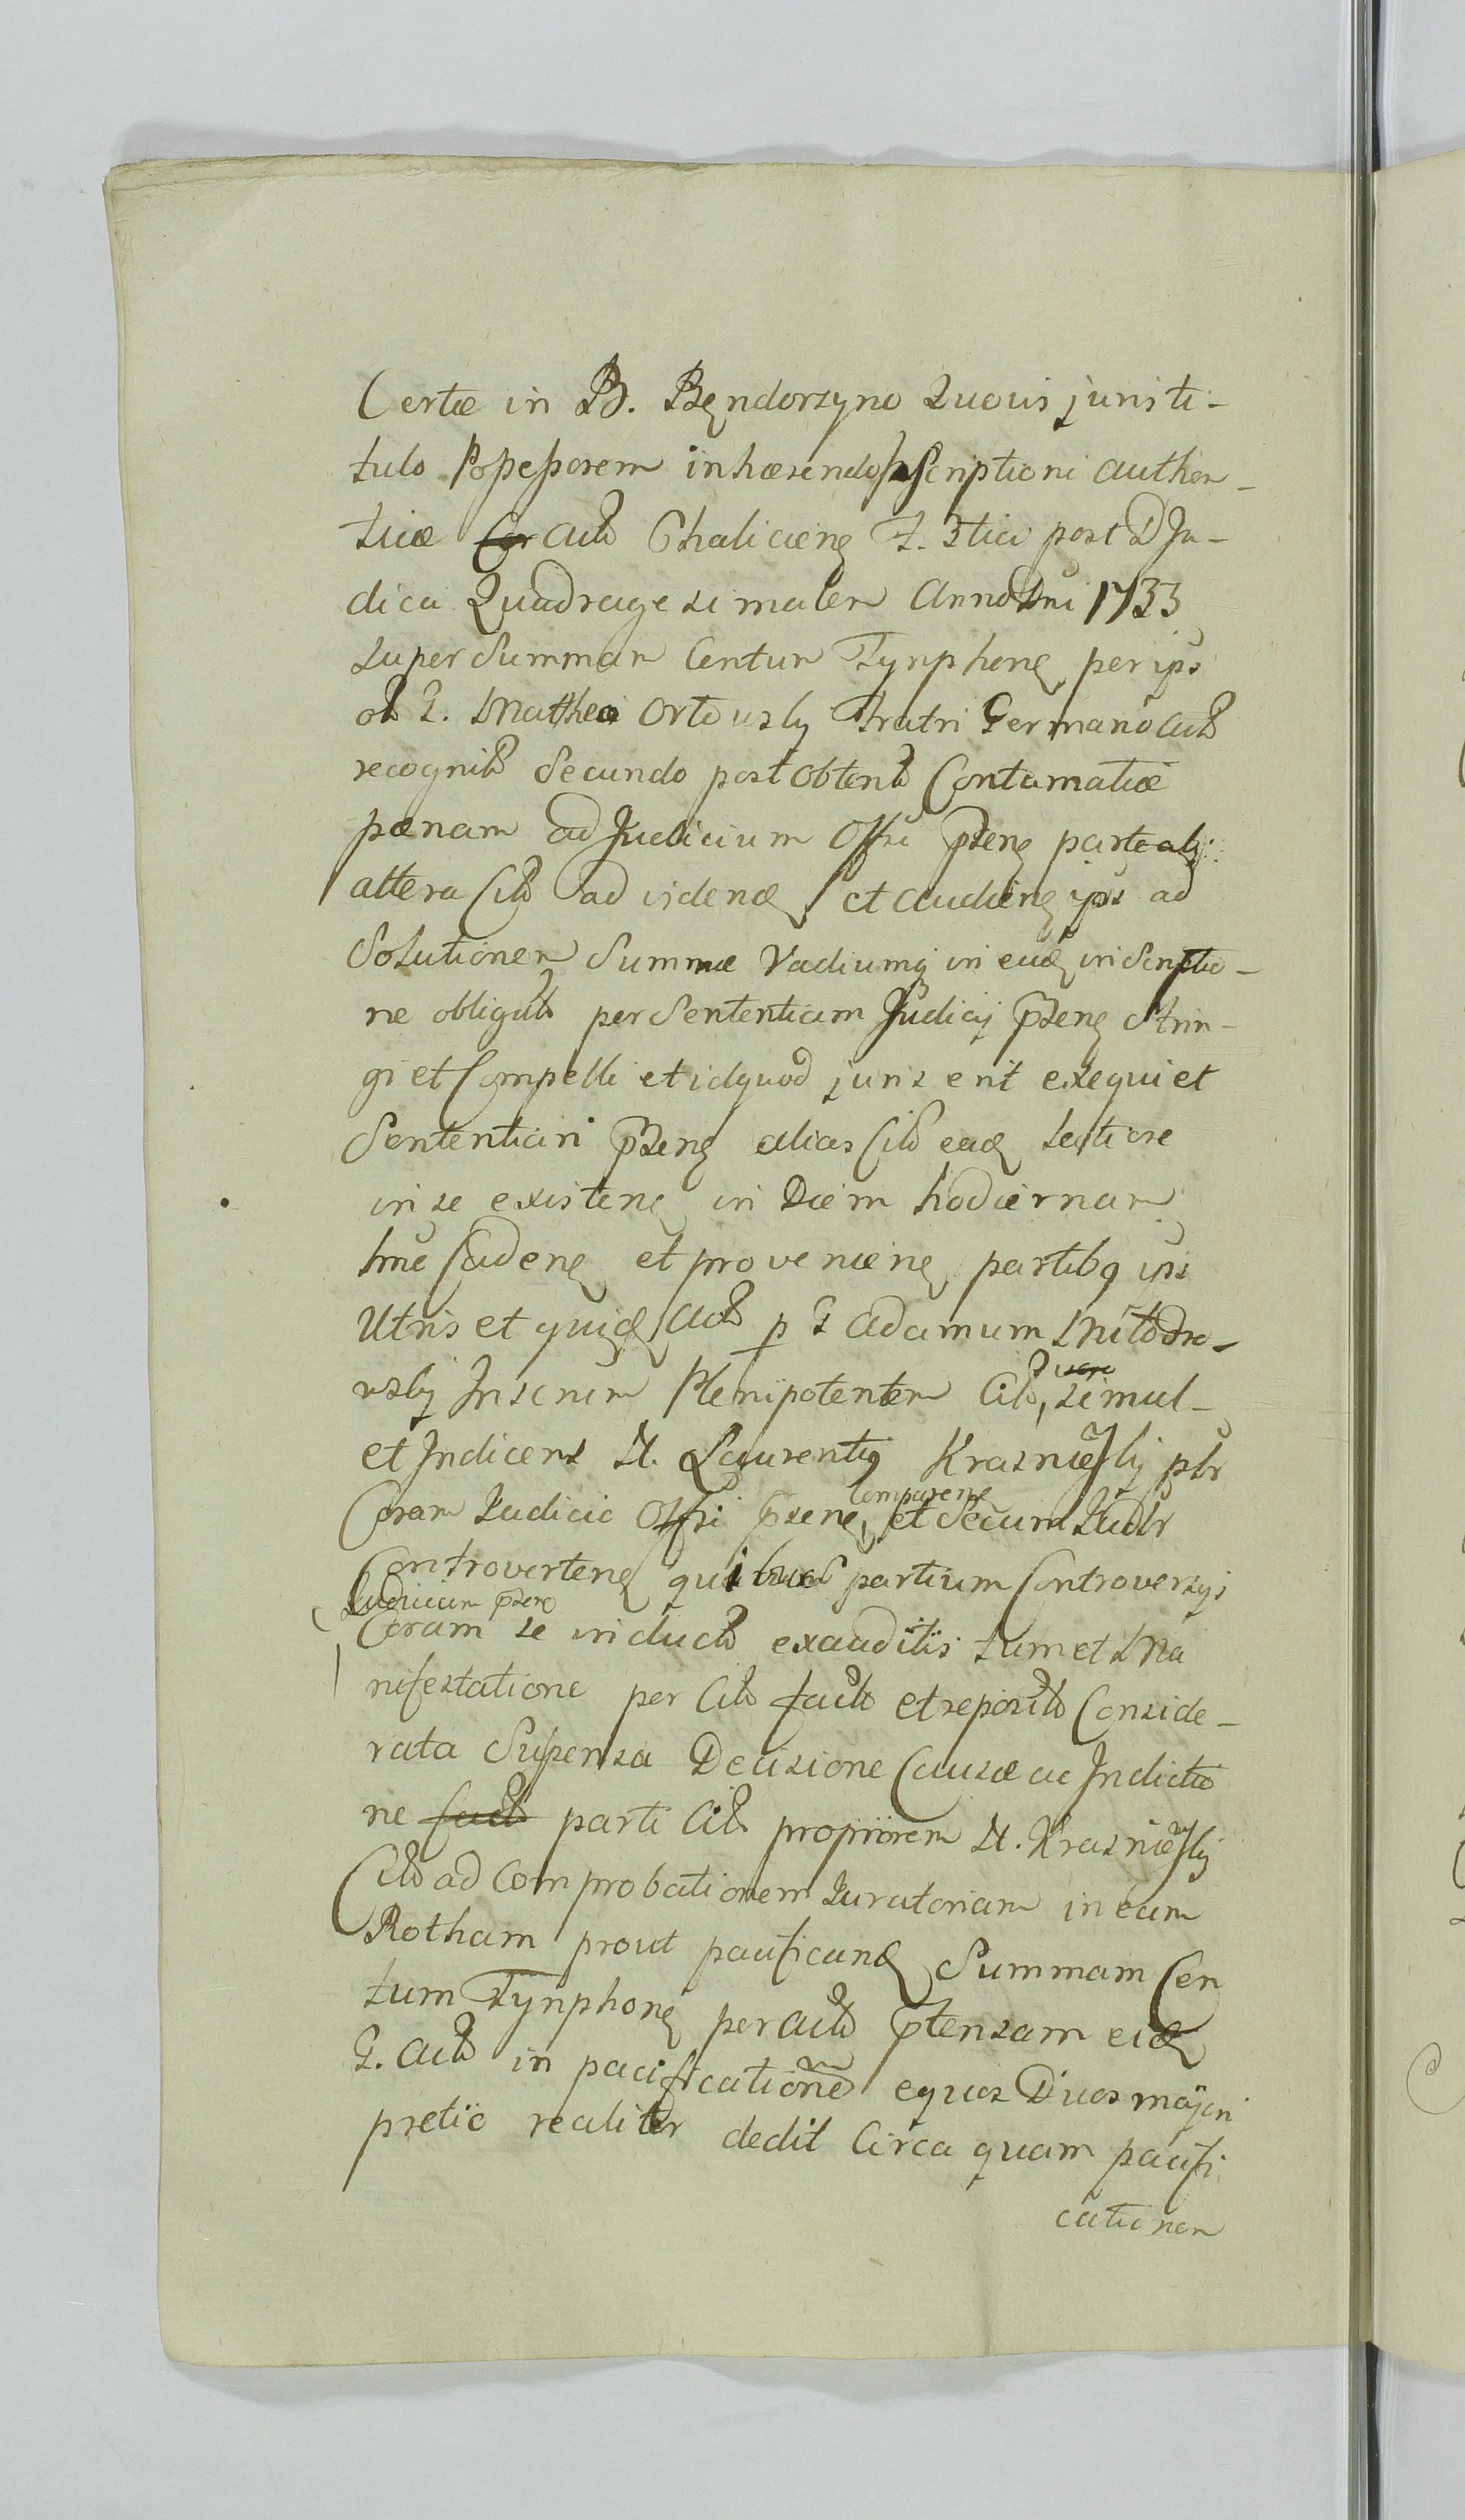 Certæ in B. Bendorzyno Quovis juris ti-
tulo Possessorem inhærendo Inscriptioni authen-
ticæ Act Chalicien F. 3tia post D Ju-
dica Quadragesimalem Anno Dni 1733
super Summam Centum Tynphon per ips
ol G. Mattheo Ortowsky Fratri Germano Act
recognit Secundo post obtent Contumatiæ
pænam ad Judicium Offi psen parte
altera Cit ad viden et audien ips ad
Solutionem Summæ Vadiumq in ead inscriptio-
ne obligat per Sententiam Judicij psen Strin-
gi et Compelli et id quod juris erit exequi et
Sententiari psen alias Cit ead latiore
in se existen in Diem hodiernam
huc Caden et provenien partibq ips
Utris et quid Act p G Adamum
wsky Inscrum Plenipotentem Cit, simul
et Indicens N. Laurentiq Krasnieski plr
Comparen
Coram Judicio Offi psen, et Secum Judlr
Controverten quibus partium Controversijs
Judicium psens
Coram se induct exauditis tum et Ma
nifestatione per Cit fact et reposit Conside-
rata Supensa Decisione Causæ ac Indictio
ne fact parti Cit propriorem N. Krasnieski
Cit ad Comprobationem Juratoriam in eam
Rotham prout pacificand Summam Cen
tum Tynphon per Act ptensam eid
G. Act in pacificatione equos Duos majori
pretio realiter dedit Circa quam pacifi
cationem